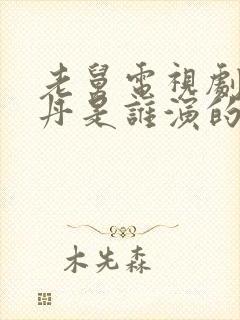 老舅電視劇
丹是誰演的
木先森